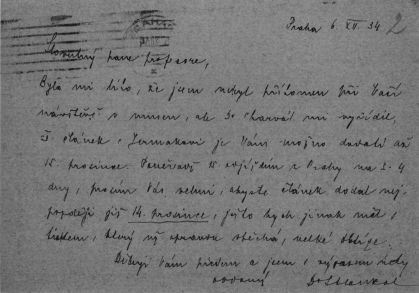 Praha 6. XII. 34 2
Slovutný pane profesore,
Bylo mi líto, že jsem nebyl přítomen při Vaší
návštěvě v museu, ale Dr Charvát mi vyřídil,
že článek o Jermakovi je Vám možno dodati až
15. prosince. Poněvadž 15. odjíždím z Prahy na 3-4
dny, prosím Vás velmi, abyste článek dodal nej-
později již 14. prosince, ježto bych jinak měl s
tiskem, který už opravdu spěchá, velké obtíže.
Děkuji Vám předem a jsem s výrazem úcty
oddaný